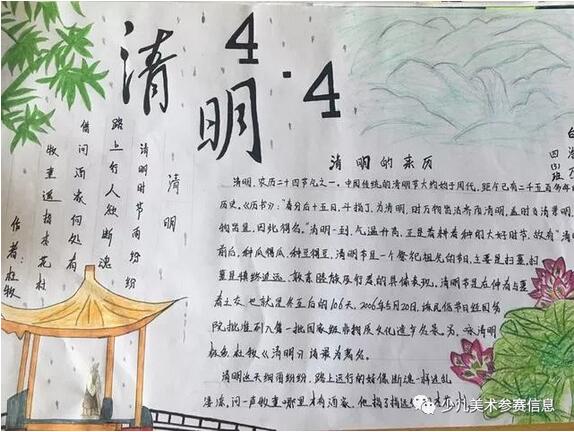 清明
4·4
清明
清明时节雨纷纷
路上行人欲断魂
借问酒家何处有
牧童遥指杏花村
作者：杜牧
清明的来历
清明，农历二十四节气之一，中国传统的清明节大约始于周代，距今已有二千五百多年的
历史。《历书》：“春分后十五日，斗指丁，为清明，时万物皆洁齐而清明，盖时当清景明，
物皆显，因此得名。”清明一到，气温升高，正是春耕春种的大好时节，故有“清明
前后，种瓜得瓜，种豆得豆。清明节是一个祭祀祖先的节日，主要是扫墓，扫
墓是慎终追远、敦亲睦族及行孝的具体表现。清明节是在仲春与暮
春之交，也就是冬至后的106天。2006年5月20日，该民俗节日经国务
院批准列入第一批国家级非物质文化遗产名录。
杜牧《清明》诗最为著名。
清明这天细雨纷纷，路上远行的好像断魂一样迷乱
凄凉，问一声牧童哪里才有酒家，他指了指远
四
班
少儿美术参赛信息